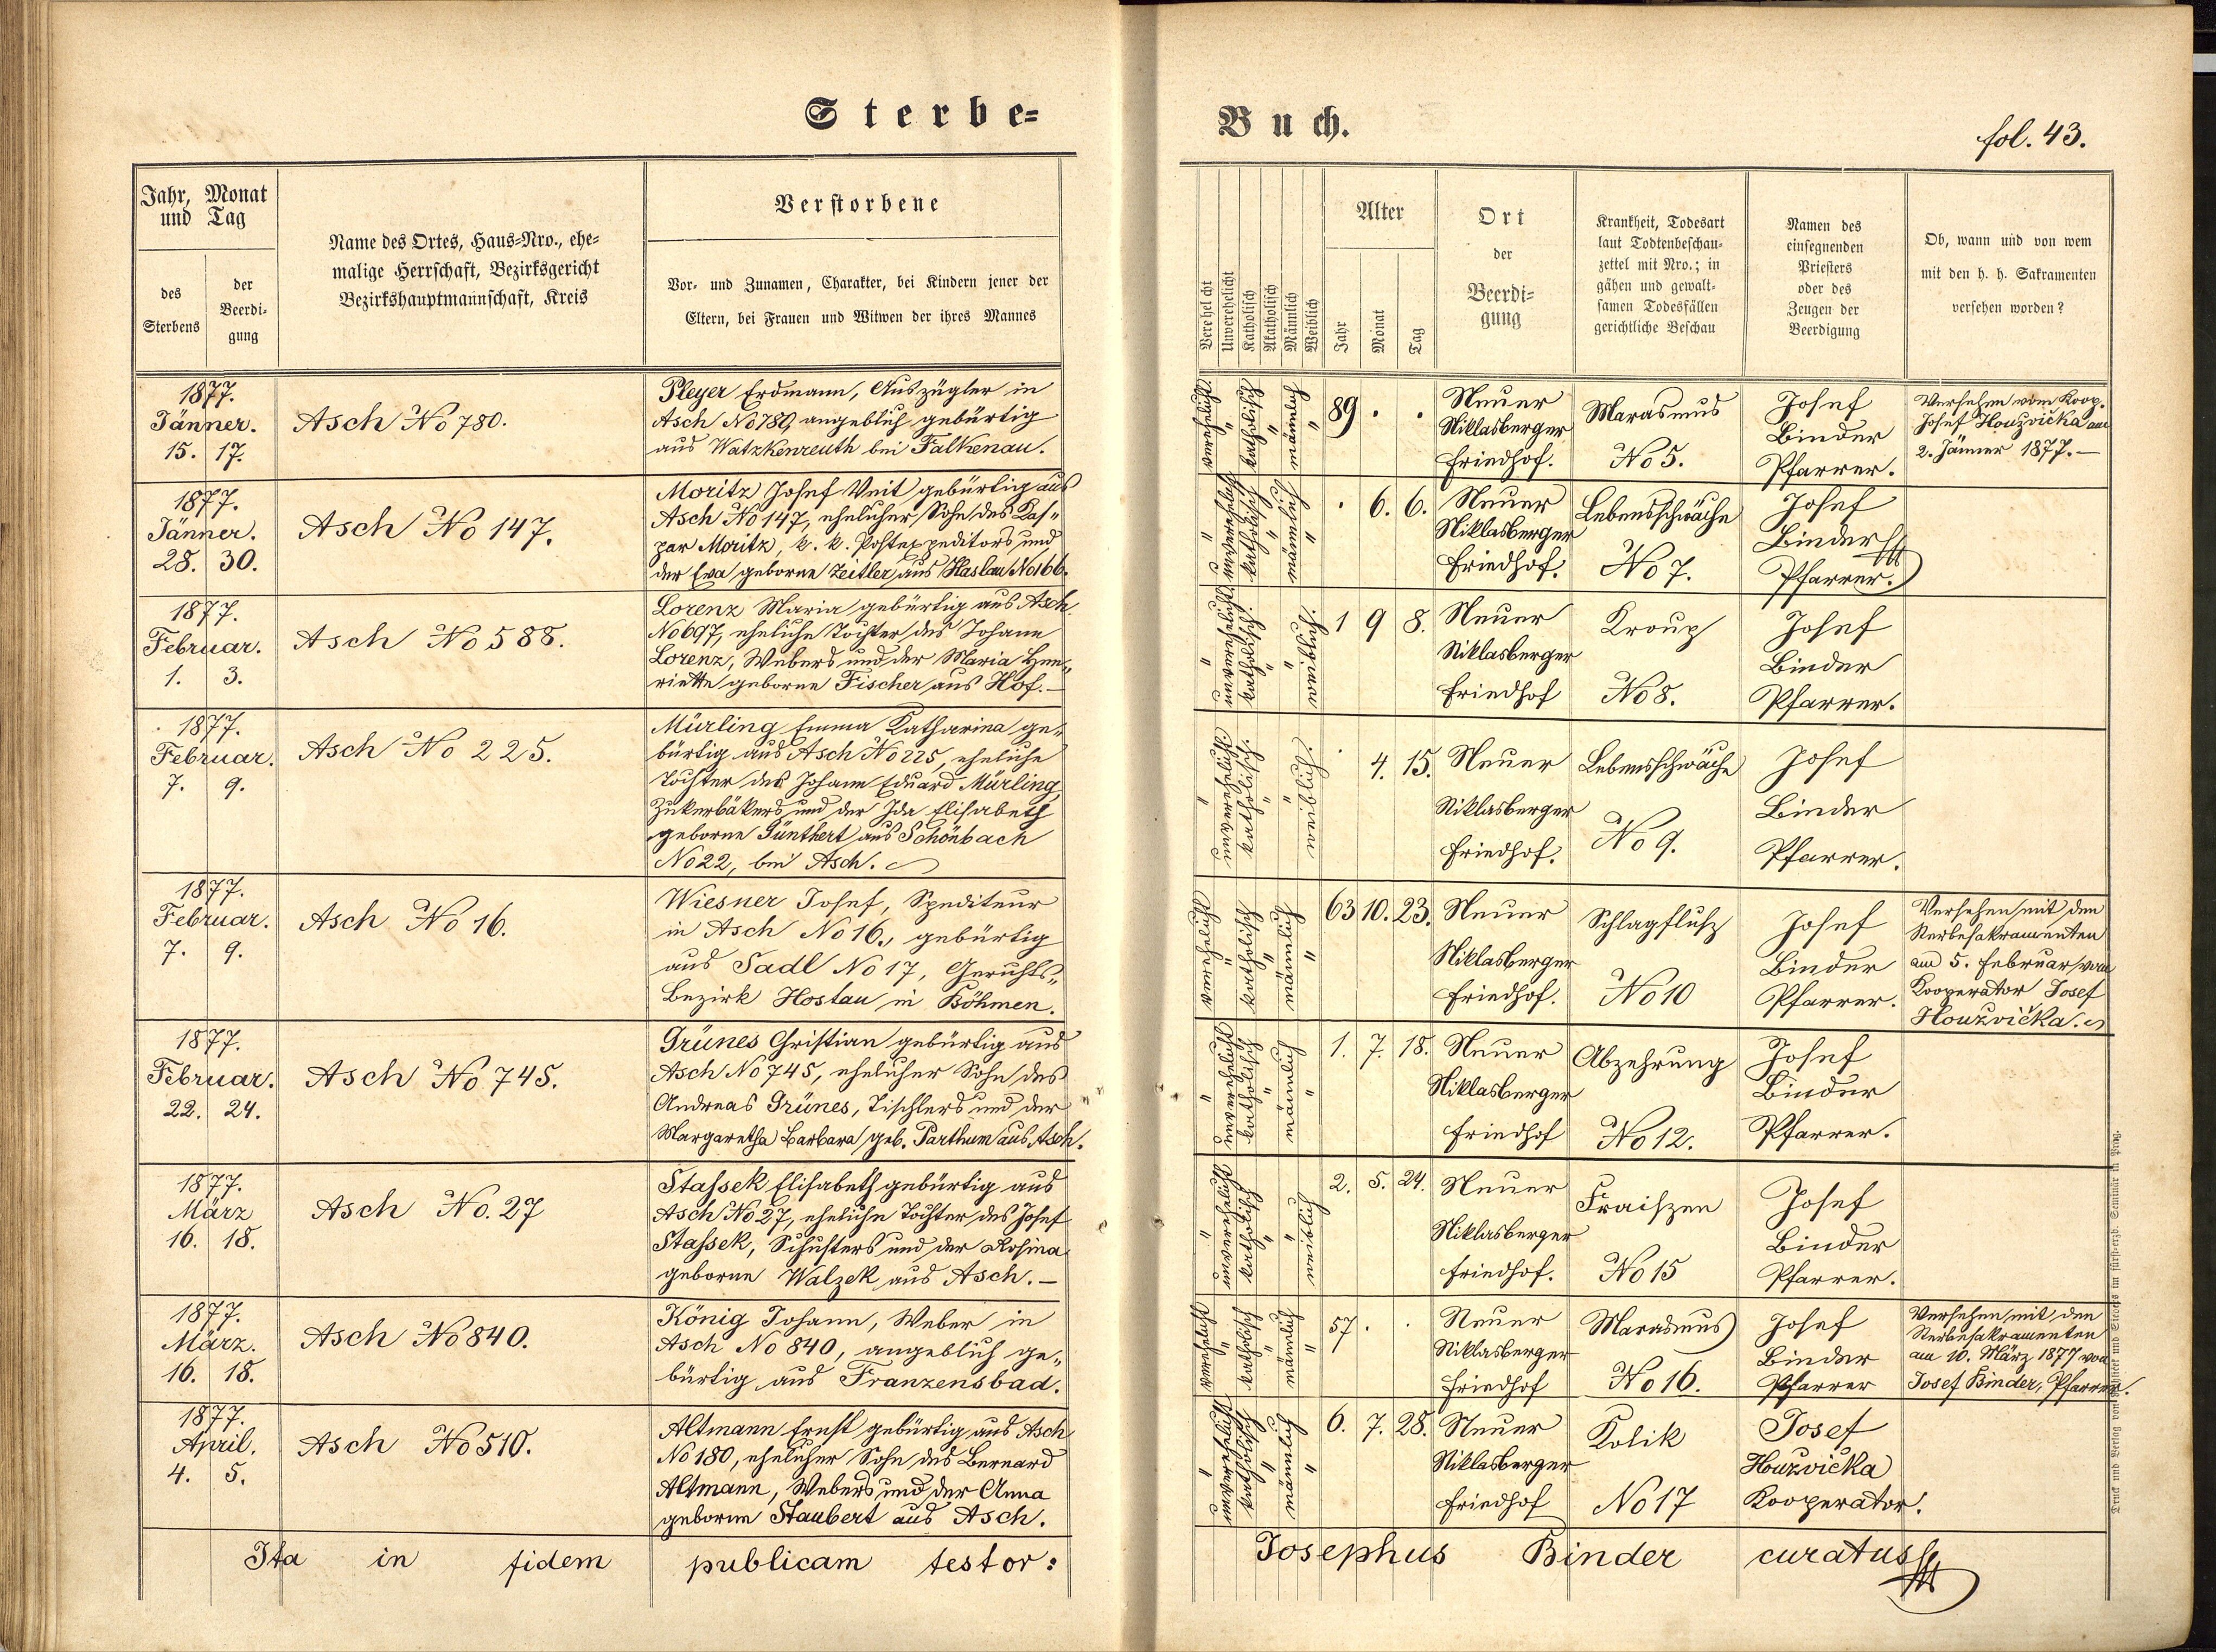 Sterbe=
Buch.
fol. 43.
Jahr, Monat
und Tag
des
Sterbens
der
Beerdi=
gung
Name des Ortes, Haus=Nro., ehe=
malige Herrschaft, Bezirksgericht
Bezirkshauptmannschaft, Kreis
Verstorbene
Vor= und Zunamen, Charakter, bei Kindern jener der
Eltern, bei Frauen und Witwen der ihres Mannes
Verehelicht
Unverehelicht
Katholisch
Akatholisch
Männlich
Weiblich
Alter
Jahr
Monat
Tag
Ort
der
Beerdi=
gung
Krankheit, Todesart
laut Todtenbeschau=
zettel mit Nro.; in
gähen und gewalt=
samen Todesfällen
gerichtliche Beschau
Namen des
einsegnenden
Priesters
oder des
Zeugen der
Beerdigung
Ob, wann und von wem
mit den h. h. Sakramenten
versehen worden?
1877.
Jänner.
15. 17.
Asch No 780.
Pleyer Erdmann, Auszügler in
Asch No 780, angeblich gebürtig
aus Watzkenreuth bei Falkenau.
verehelicht " katholisch " männlich "
89 . .
Neuer
Niklasberger
Friedhof.
Marasmus
No 5.
Josef
Binder
Pfarrer.
Versehen vom Koop.
Josef Houzvička am
2. Jänner 1877. —
1877.
Jänner.
28. 30.
Asch No 147.
Moritz Josef Veit gebürtig aus
Asch No 147, ehelicher Sohn des Kas=
par Moritz, k. k. Postexpeditors und
der Eva geborne Zeitler aus Haslau No 166.
" unverehelicht katholisch " männlich "
. 6. 6.
Neuer
Niklasberger
Friedhof.
Lebensschwäche
No 7.
Josef
Binder
Pfarrer.
1877.
Februar.
1. 3.
Asch No 588.
Lorenz Maria gebürtig aus Asch
No 697, eheliche Tochter des Johann
Lorenz, Webers und der Maria Hen=
riette geborne Fischer aus Hof. —
" unverehelicht katholisch. " " weiblich.
1 9 8.
Neuer
Niklasberger
Friedhof
Kroup
No 8.
Josef
Binder
Pfarrer.
1877.
Februar.
7. 9.
Asch No 225.
Mürling Emma Katharina ge=
bürtig aus Asch No 225, eheliche
Tochter des Johann Eduard Mürling,
Zukerbäkers und der Ida Elisabeth
geborne Günthert aus Schönbach
No 22, bei Asch.
" unverehelicht katholisch. " " weiblich.
. 4. 15.
Neuer
Niklasberger
Friedhof.
Lebensschwäche
No 9.
Josef
Binder
Pfarrer.
1877.
Februar.
7. 9.
Asch No 16.
Wiesner Josef, Spediteur
in Asch No 16., gebürtig
aus Sadl No 17, Gerichts=
Bezirk Hostau in Böhmen.
verehelicht " katholisch " männlich "
63 10. 23.
Neuer
Niklasberger
Friedhof.
Schlagflusz
No 10
Josef
Binder
Pfarrer.
Versehen mit den
Sterbesakramenten
am 5. Februar vom
Kooperator Josef
Houzvička.
1877.
Februar.
22. 24.
Asch No 745.
Grünes Christian gebürtig aus
Asch No 745, ehelicher Sohn des
Andreas Grünes, Tischlers und der
Margaretha Barbara geb. Parthum aus Asch.
" unverehelicht katholisch " männlich "
1. 7. 18.
Neuer
Niklasberger
Friedhof
Abzehrung
No 12.
Josef
Binder
Pfarrer.
1877.
März
16. 18.
Asch No. 27
Stassek Elisabeth gebürtig aus
Asch No 27, eheliche Tochter des Josef
Stassek, Schusters und der Rosina
geborne Walzek aus Asch. —
" unverehelicht katholisch " " weiblich
2. 5. 24.
Neuer
Niklasberger
Friedhof.
Fraiszen
No 15
Josef
Binder
Pfarrer.
1877.
März.
16. 18.
Asch No 840.
König Johann, Weber in
Asch No 840, angeblich ge=
bürtig aus Franzensbad.
verehelicht " katholisch " männlich "
57 . .
Neuer
Niklasberger
Friedhof
Marasmus
No 16.
Josef
Binder
Pfarrer
Versehen mit den
Sterbesakramenten
am 10. März 1877 von
Josef Binder, Pfarrer.
1877.
April.
4. 5.
Asch No 510.
Altmann Ernst gebürtig aus Asch
No 180, ehelicher Sohn des Bernard
Altmann, Webers und der Anna
geborne Staubert aus Asch.
" unverehelicht katholisch " männlich "
6. 7. 28.
Neuer
Niklasberger
Friedhof
Kolik
No 17
Josef
Huzvička
Kooperator.
Ita in fidem publicam testor:
Josephus Binder curatus
Druck und Verlag von im fürst-erzb. Seminar in Prag.